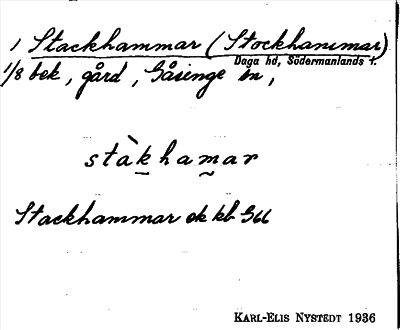 1 Stackhammar (Stockhammar)
Daga hd, Södermanlands l.
1/8 bek, gård, Gåsinge sn,
stàkhamar
Stackhammar ek kb
KARL-ELIS NYSTEDT 1936